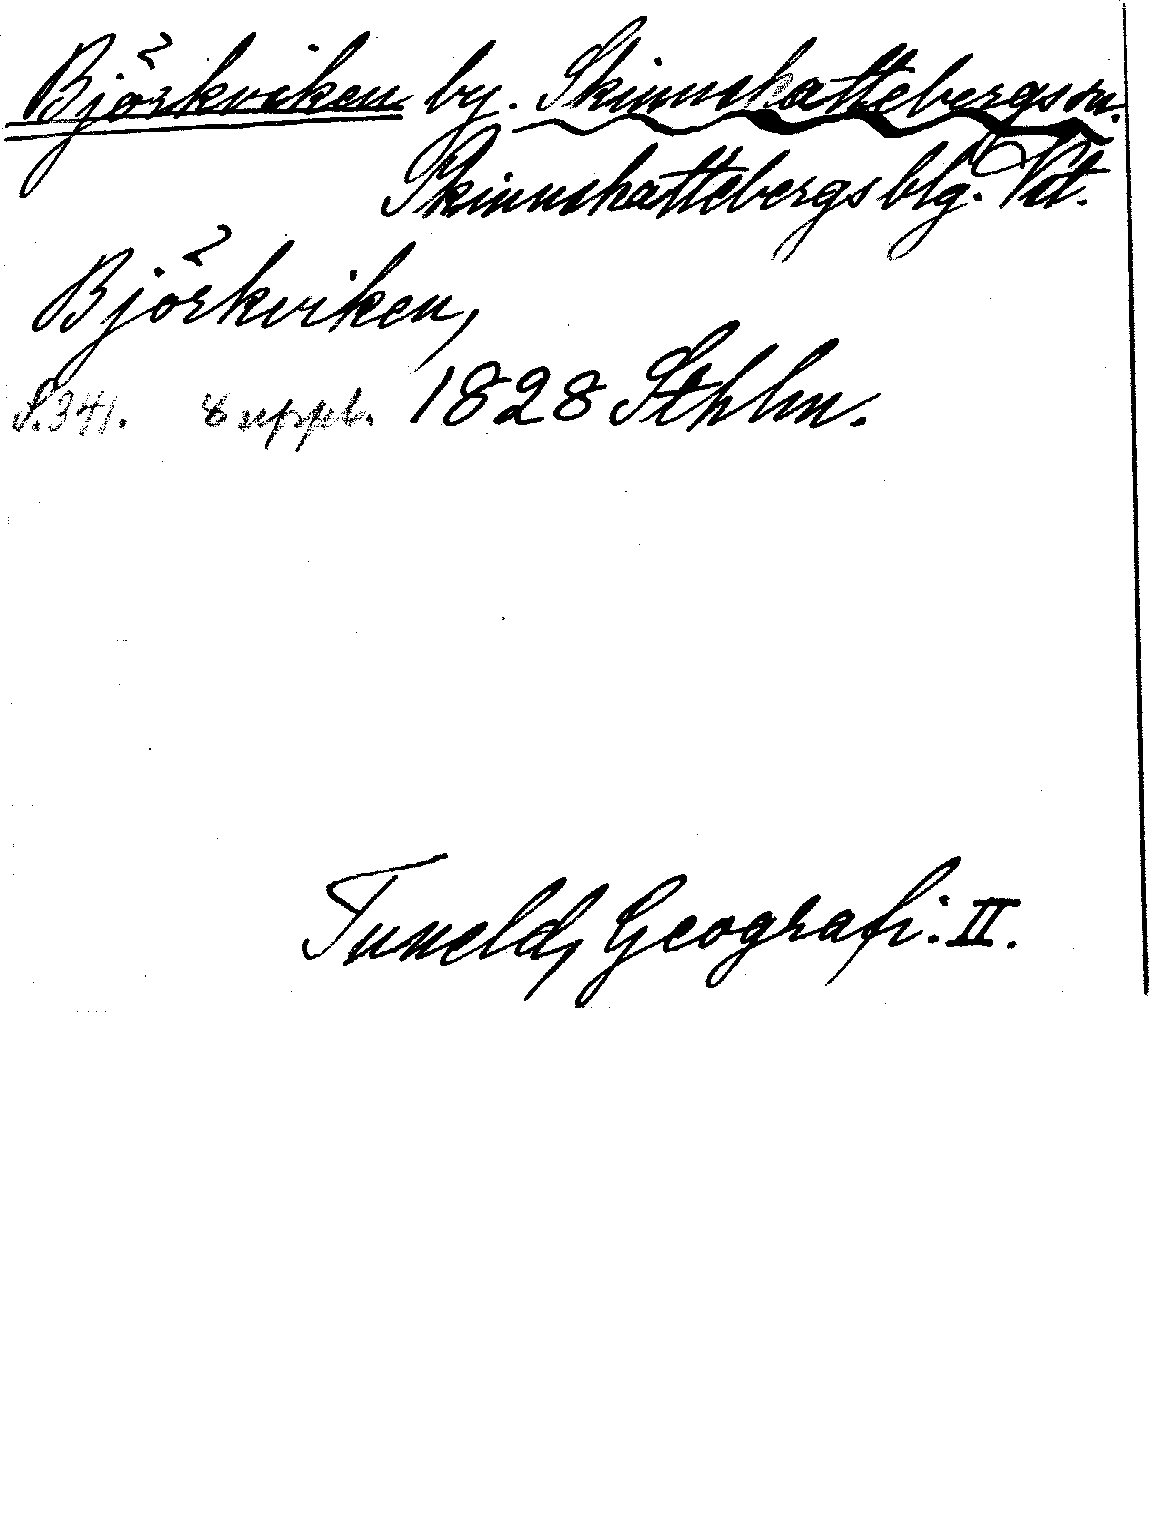 Björkviken by. Skinnskattebergs sn.
Skinnskattebergs blg. Vst.
Björkviken,
S. 341. 8 uppl. 1828 Sthlm.
Tuneld, Geografi. II.